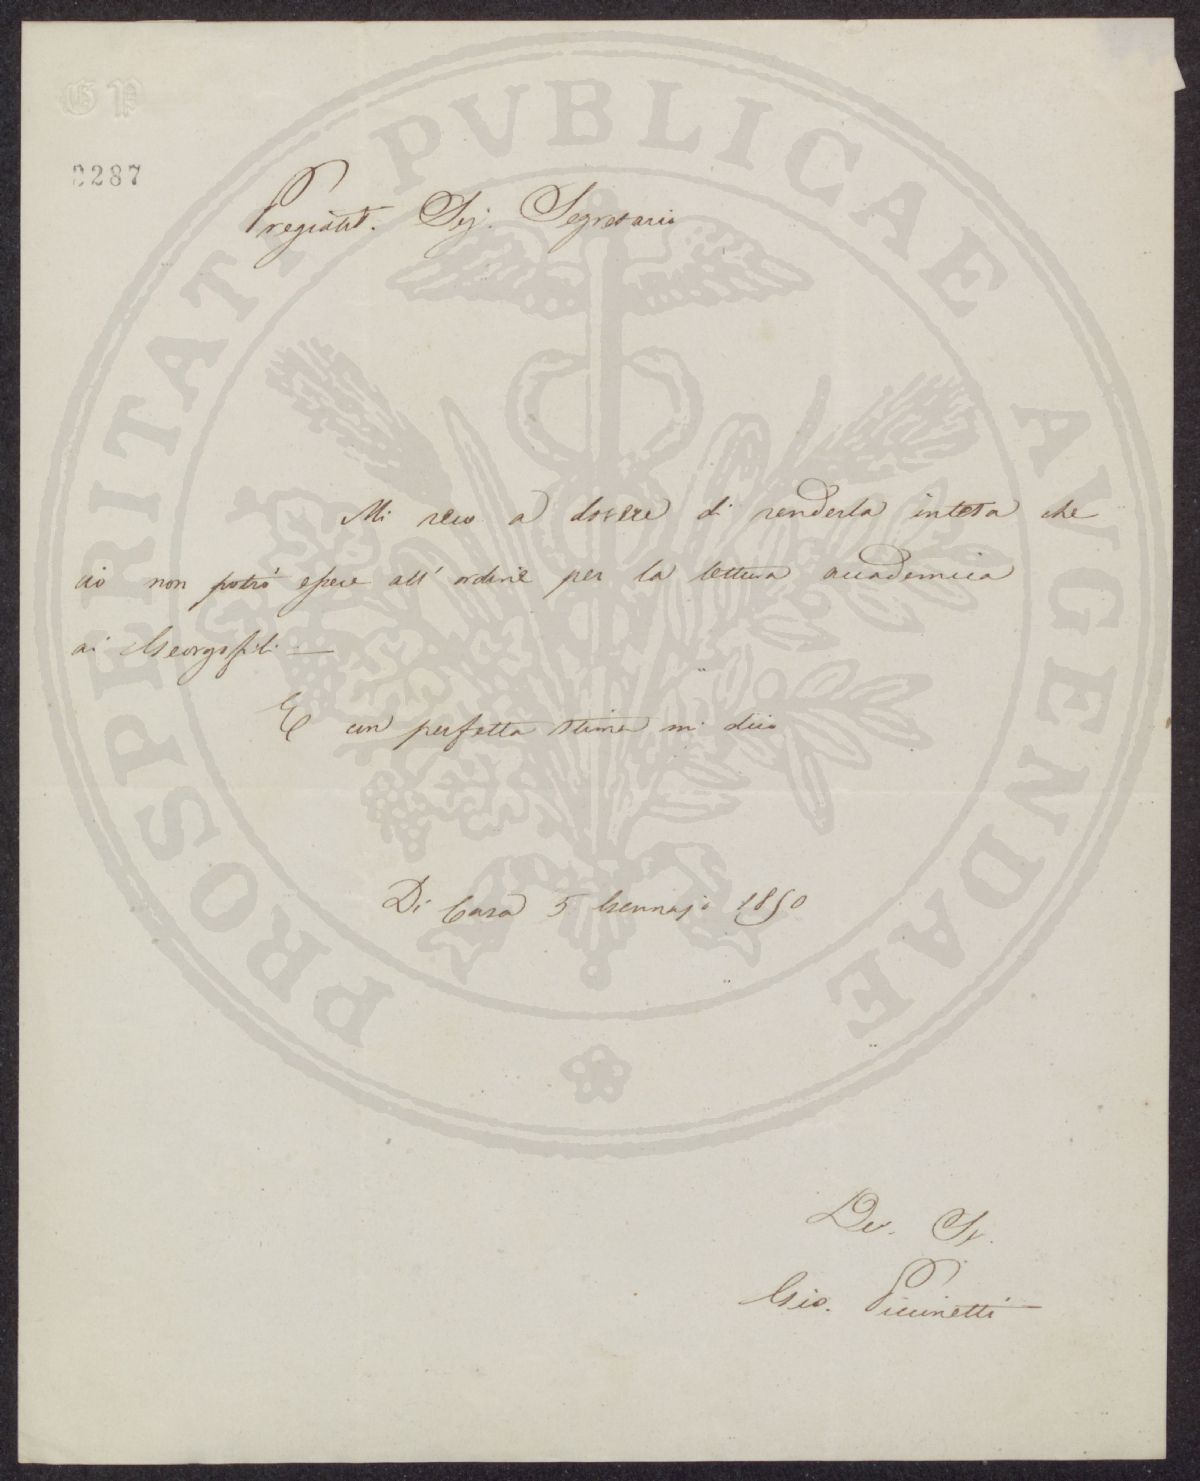 GP
2287
PROSPERITATI PVBLICAE AVGENDAE
Pregiatis. Sig. Segretario
Mi reco a dovere di renderla intesa che
io non potrò essere all' ordine per la lettura accademica
ai Georgofili —
E con perfetta stima mi dico
Di Casa 5 Gennajo 1850
De. Se.
Gio. Piccinetti